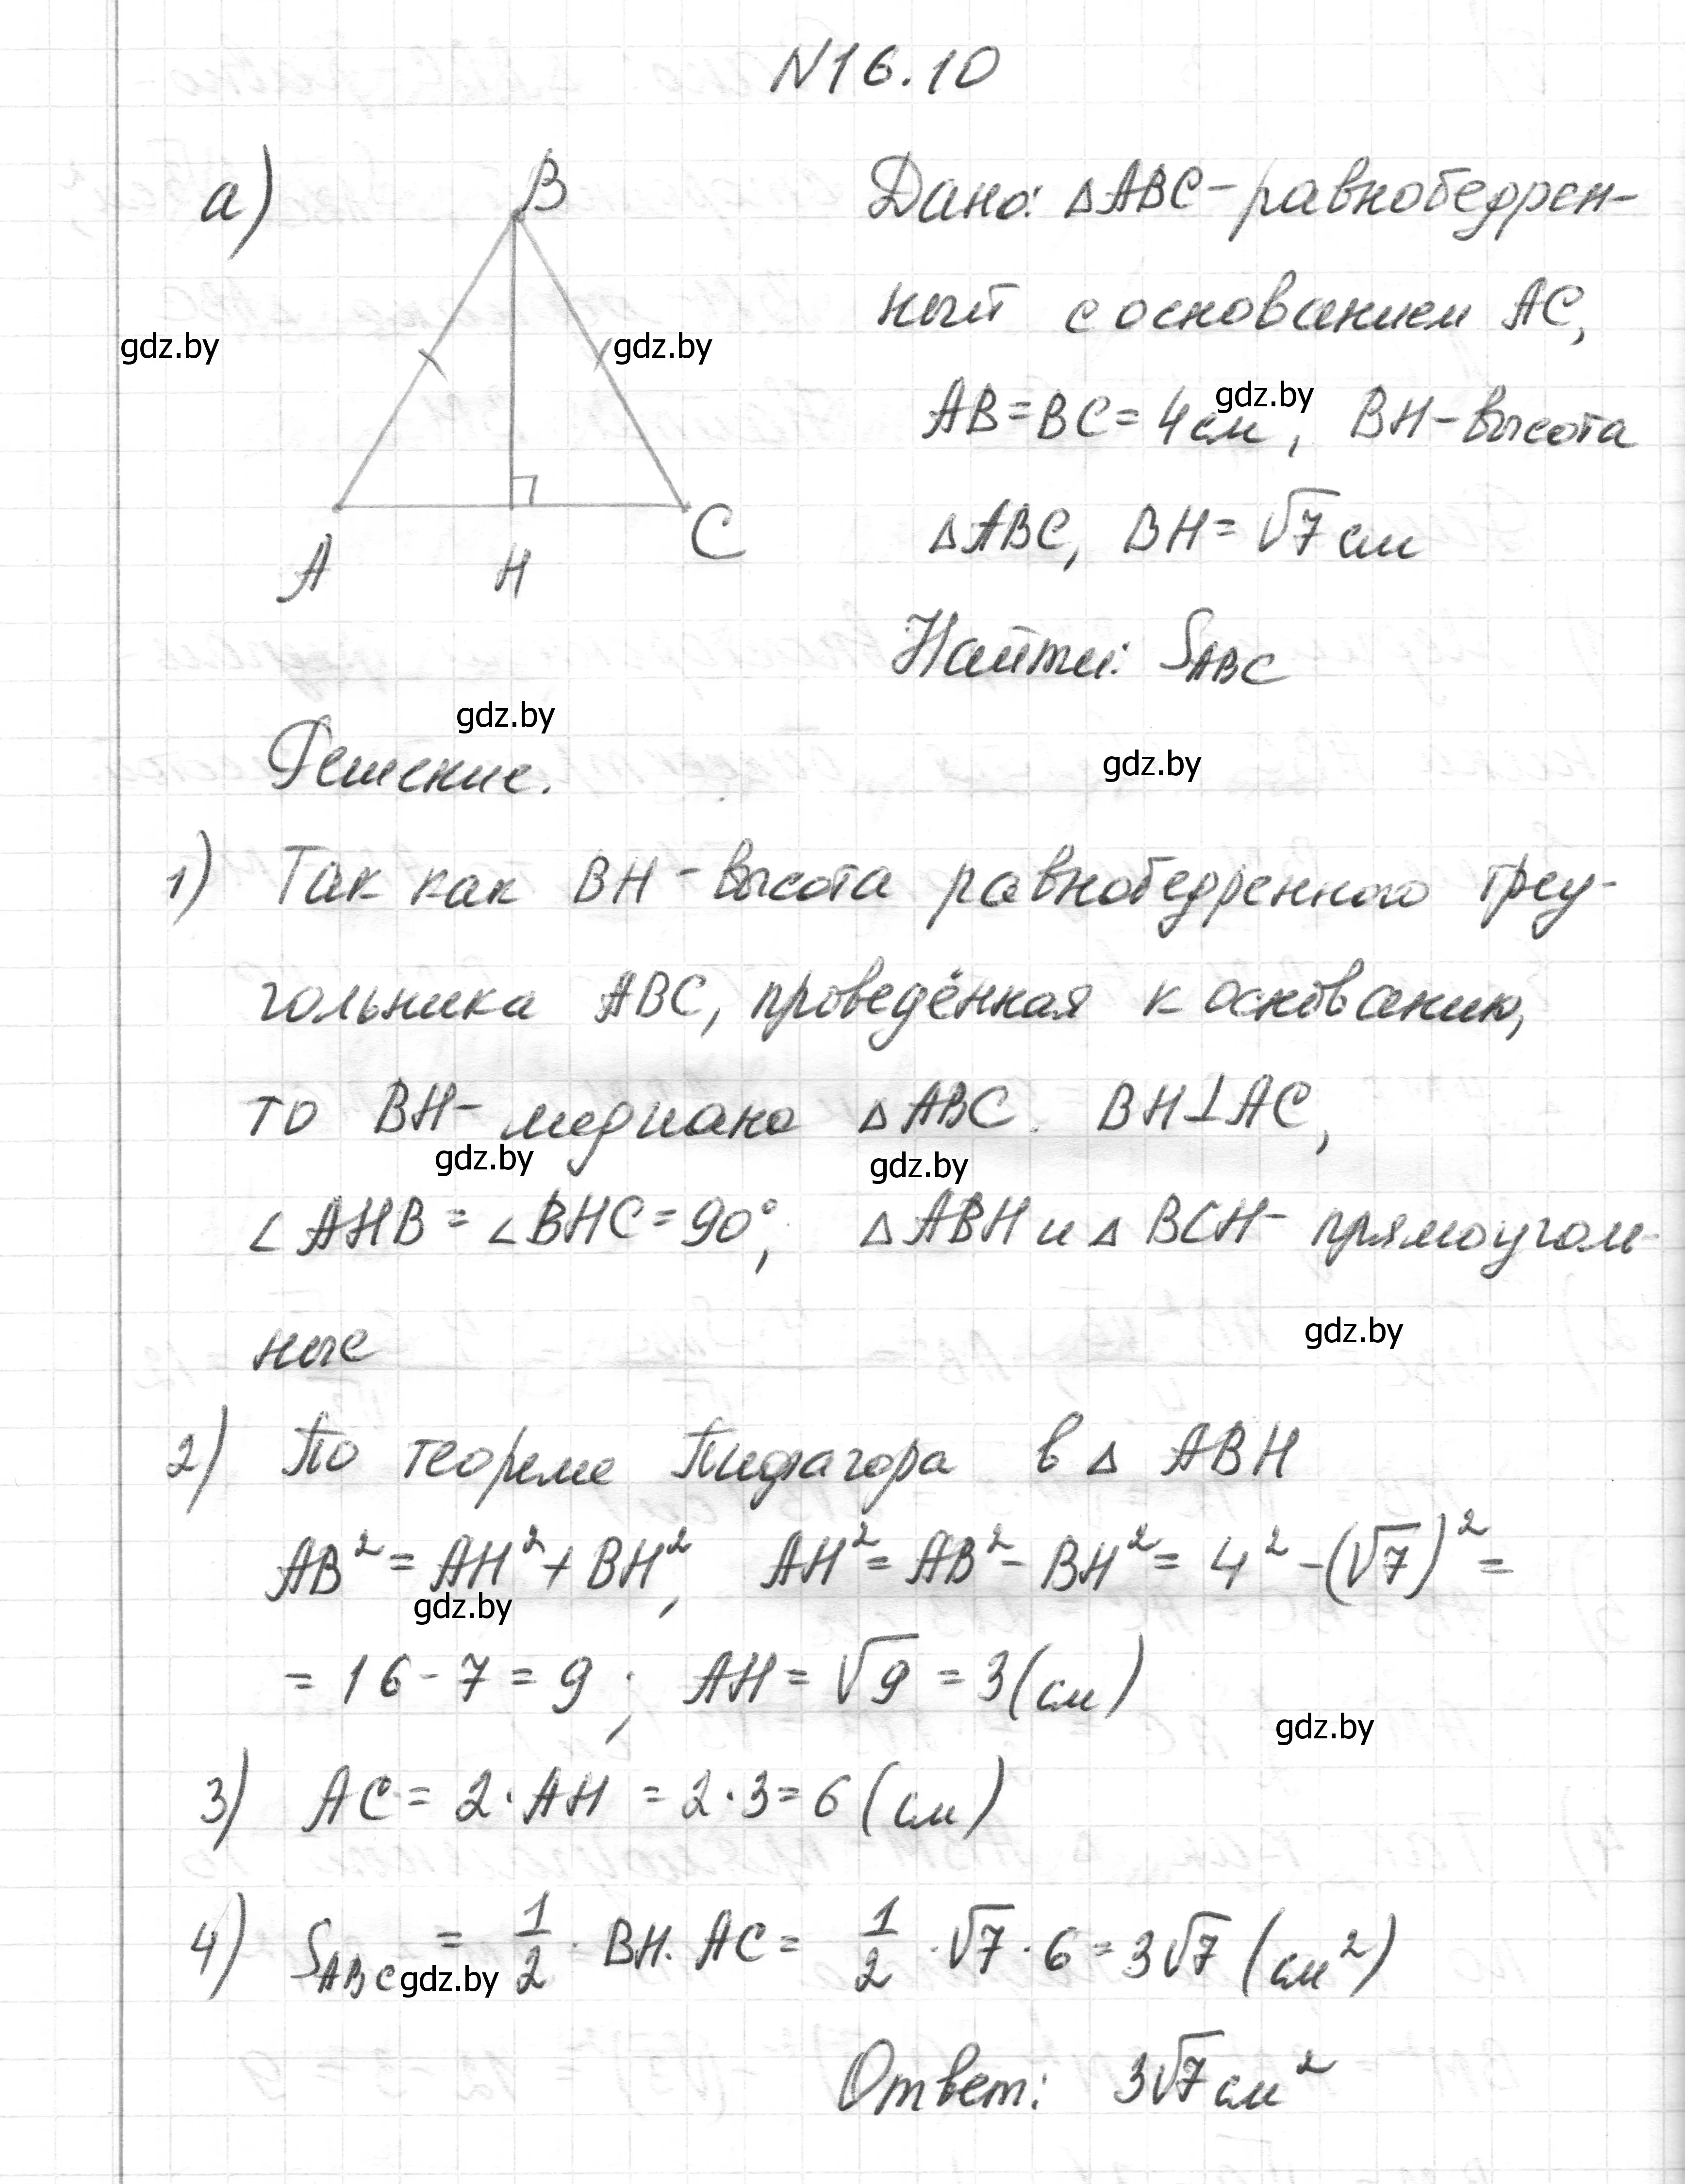 N16.10
а)
B
A
H
C
Дано: △ABC-равнобедрен-
ный с основанием AC,
AB=BC=4см, BH-высота
△ABC, BH=√7см
Найти: S_ABC
gdz.by
gdz.by
gdz.by
gdz.by
gdz.by
Решение.
1) Так как BH-высота равнобедренного треу-
гольника ABC, проведённая к основанию,
то BH-медиана △ABC. BH⊥AC,
gdz.by
gdz.by
∠AHB=∠BHC=90°, △ABH и △BCH-прямоуголь-
ные
gdz.by
2) По теореме Пифагора в △ABH
AB²=AH²+BH², AH²=AB²-BH²=4²-(√7)²=
gdz.by
=16-7=9; AH=√9=3(см)
gdz.by
3) AC=2·AH=2·3=6(см)
4) S_ABC=1/2·BH·AC=1/2·√7·6=3√7(см²)
gdz.by
Ответ: 3√7см²